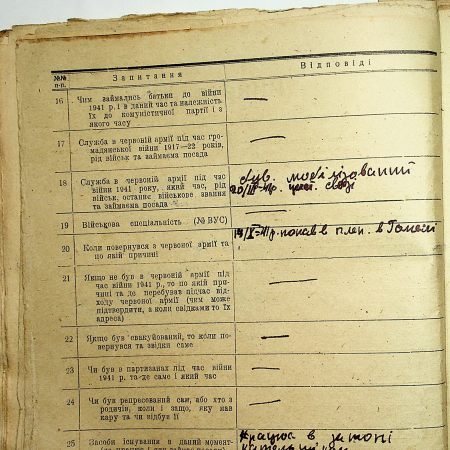 №№ п-п.
Запитання
Відповіді
16 Чим займались батьки до війни
1941 р. і в даний час та належість
їх до комуністичної партії і з
якого часу
—
17 Служба в червоній армії під час гро-
мадянської війни 1917—22 років,
рід військ та займаєма посада
—
18 Служба в червоній армії під час
війни 1941 року, який час, рід
військ, останнє військове звання
та займаєма посада
був мобілізований
—
19 Військова спеціальність (№ ВУС)
20 Коли повернувся з червоної армії та
по якій причині
попав в плен в
21 Якщо не був в червоній армії під
час війни 1941 р., то по якій при-
чині та де перебував підчас від-
ходу червоної армії (чим може
підтвердити, а коли свідками то їх
адреса)
—
22 Якщо був евакуйований, то коли по-
вернувся та звідки саме
—
23 Чи був в партизанах під час війни
1941 р. та де саме і який час
—
24 Чи був репресований сам, або хто з
родичів, коли і защо, яку мав
кару та чи відбув її
—
25 Засоби існування в даний момент
Працюю в